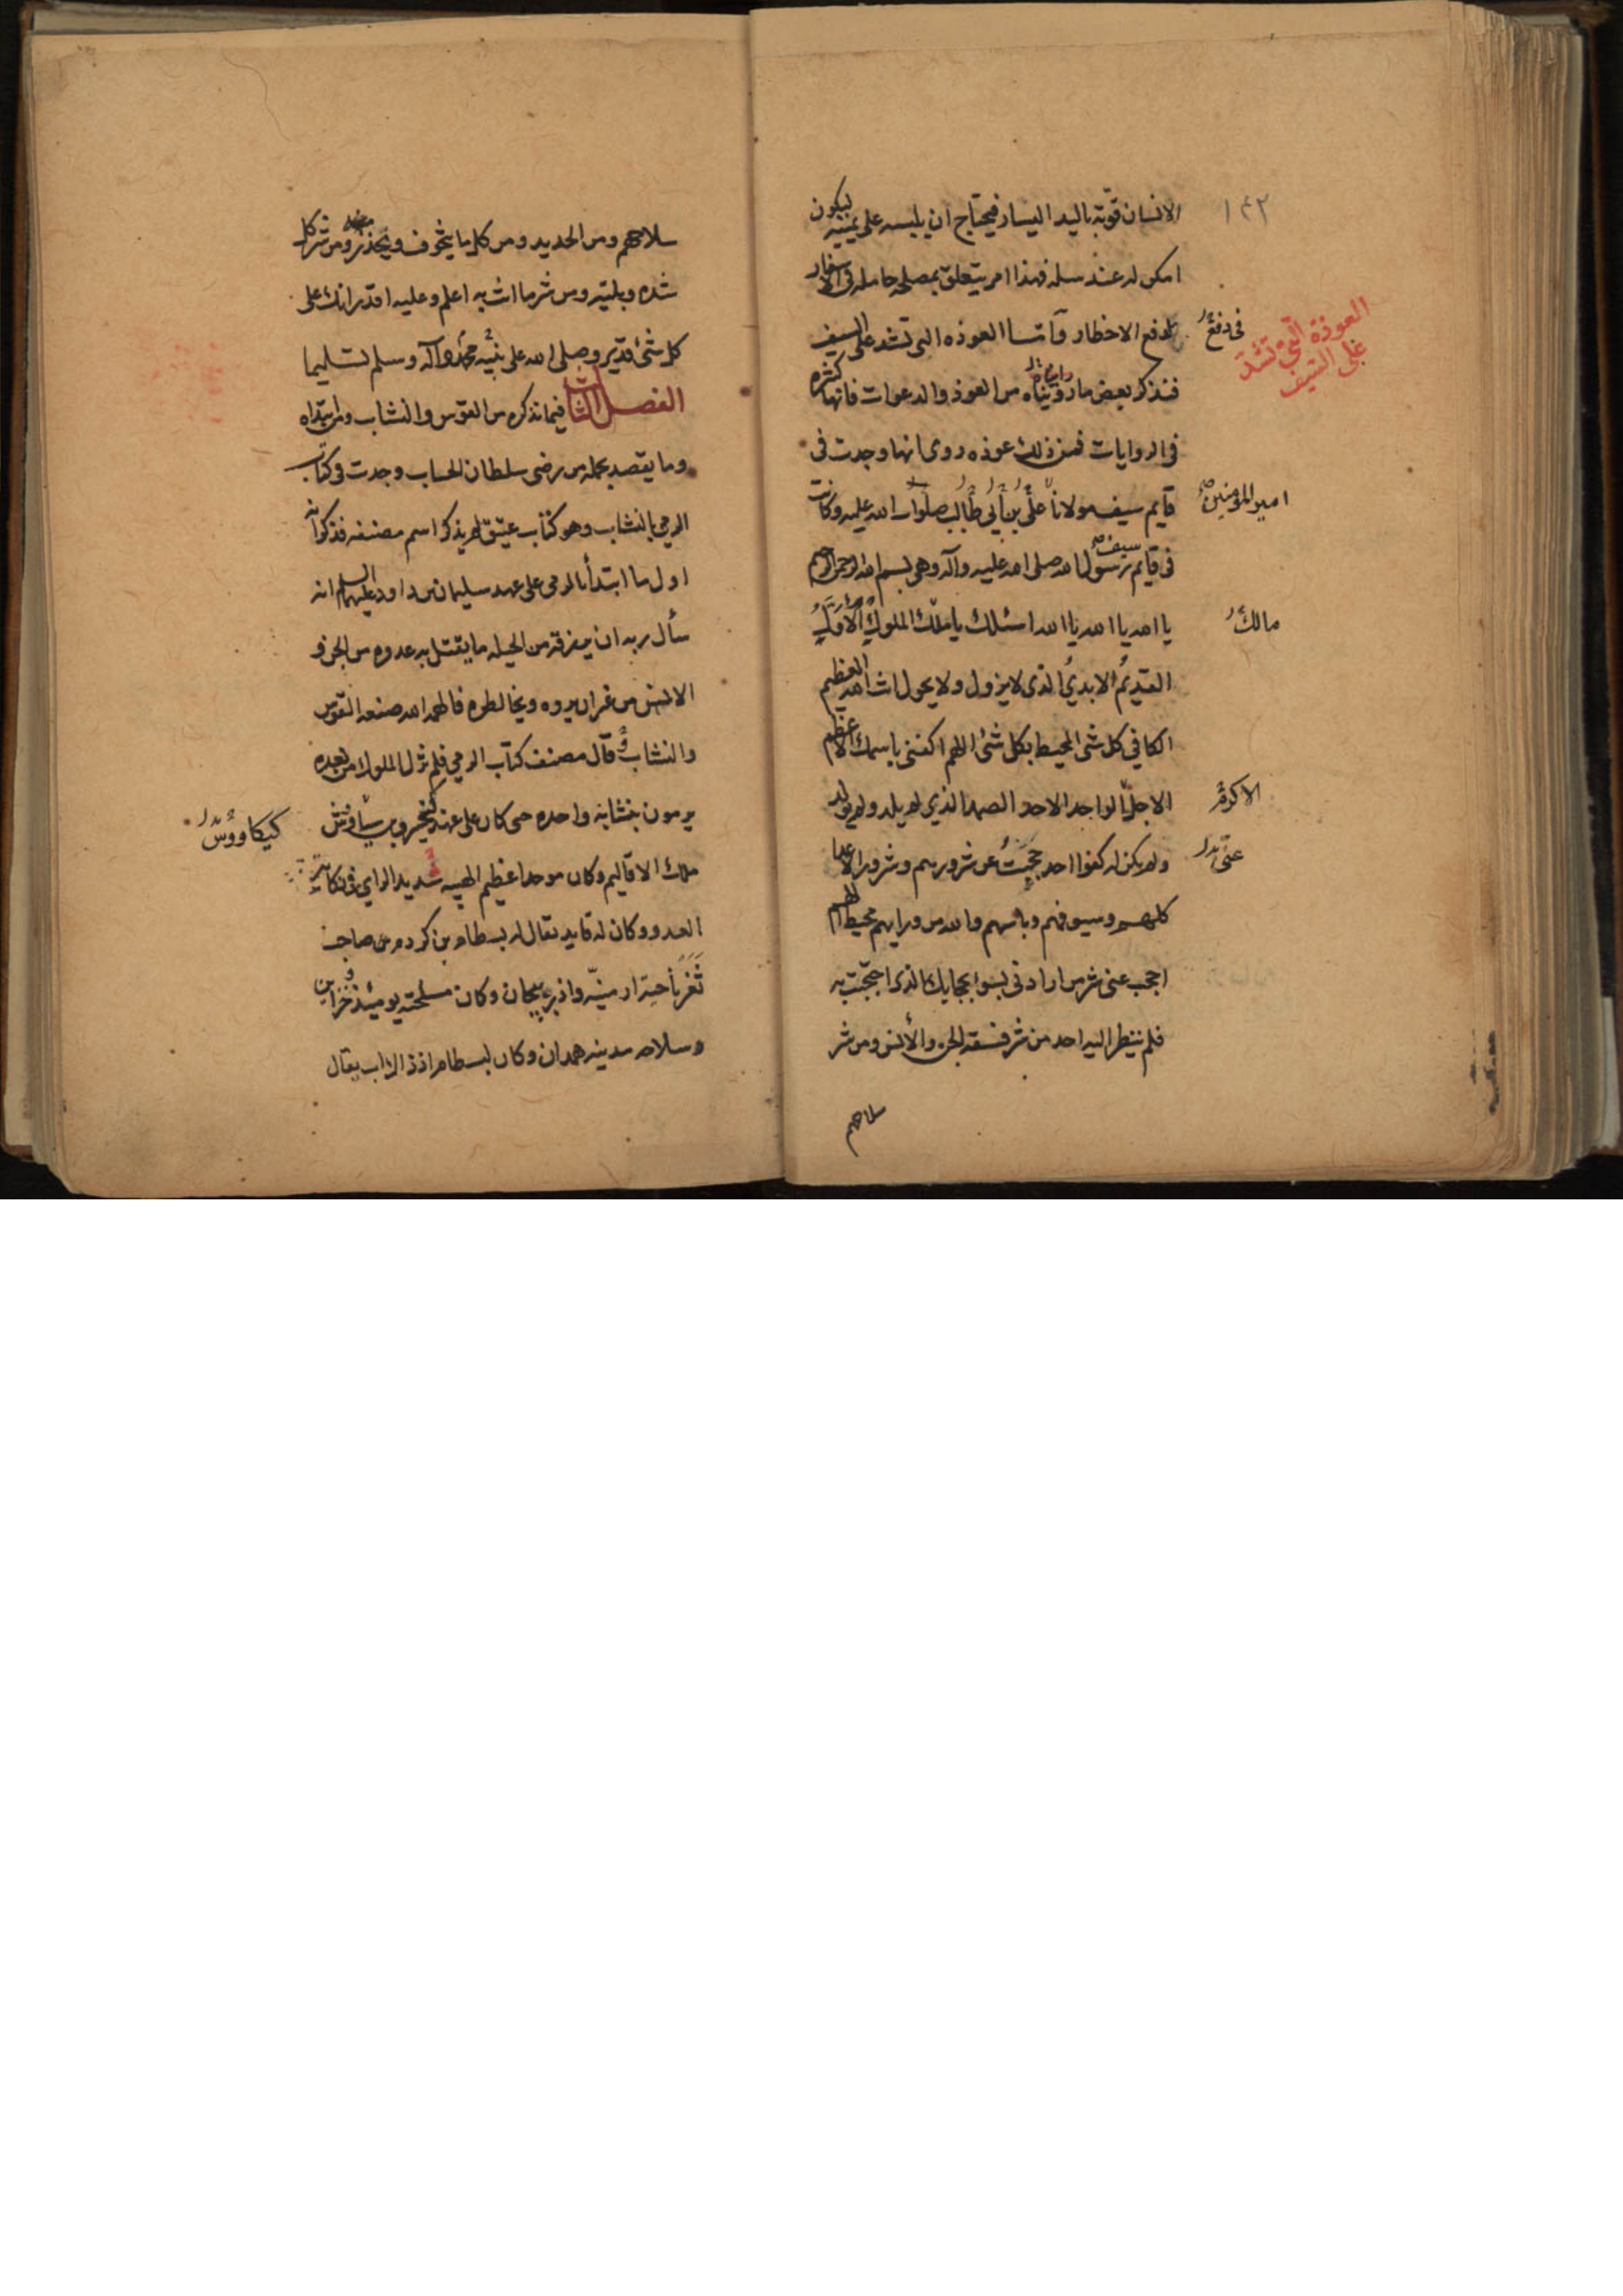 ١٤٢
الانسان قوته باليد اليسار فيحتاج ان يلبسه على يمينه ليكون
امكن له عند سله فهذا امر يتعلق بمصلحه حامله فى الاسفار
فى دفع
لدفع الاخطار واما العوذه التى تشد على السيف
العوذة التي تشد
على السيف
فنذكر بعض ما رويناه من العوذ والدعوات فانها كثيره
فى الروايات فمن ذلك عوذه روى انها وجدت فى
قايم سيف مولانا على بن أبى طالب صلوات الله عليه وكانت
امير المؤمنين
فى قايم سيف رسول الله صلى الله عليه وآله وهى بسم الله الرحمن الرحيم
يا الله يا الله يا الله اسئلك يا ملك الملوك الاول
مالك
القديم الابدي الذى لا يزول ولا يحول انت الله العظيم
الكافي كل شى المحيط بكل شئ اللهم اكفنى باسمك الاعظم
الاجل الواحد الاحد الصمد الذي لم يلد ولم يولد
الاكرم
ولم يكن له كفوا احد احجب عن شرورهم وشرور الاعدا
عنى
كلهم وسيوفهم وباسهم والله من ورايهم محيط اللهم
احجب عنى شر من ارادنى بسوء بحجابك الذى احتجبت به
فلم ينظر اليه احد من شر فسقة الجن والأنس ومن شر
سلاحهم
سلاحهم ومن الحديد ومن كل ما يتخوف ويحذر ومن شر كل
شده وبليه ومن شر ما انت به اعلم وعليه اقدر انك على
كل شئ قدير وصلى الله على نبيه محمد وآله وسلم تسليما
الفصل الثالث فيما نذكره من القوس والنشاب ومن ابتداه
وما يقصد بحمله من رضى سلطان الحساب وجدت فى كتاب
الرمي بالنشاب وهو كتاب عتيق لم يذكر اسم مصنفه فذكر ان
اول ما ابتدأ بالرمى على عهد سليمان بن داود عليهما السلم انه
سأل ربه ان يرزقه من الحيله ما يقتل به عدوه من الجن و
الانس من غير ان يروه ويخالطوه فالهمه الله صنعه القوس
والنشاب قال مصنف كتاب الرمي فلم تزل الملوك من بعده
يرمون بنشابه واحده حى كان على عهد كيخسرو بن سياوش
كيكاووس
ملك الاقاليم وكان موحدا عظيم الهيبه شديد الراي فى مكايد
العدو وكان له قايد يقال له بسطام بن كردم من صاحب
ثغر ناحية ارمنيه واذربيجان وكان مسلحته يومئذ وخزاين
وسلاحه مدينه همدان وكان لبسطام اذ ذاك اب يقال